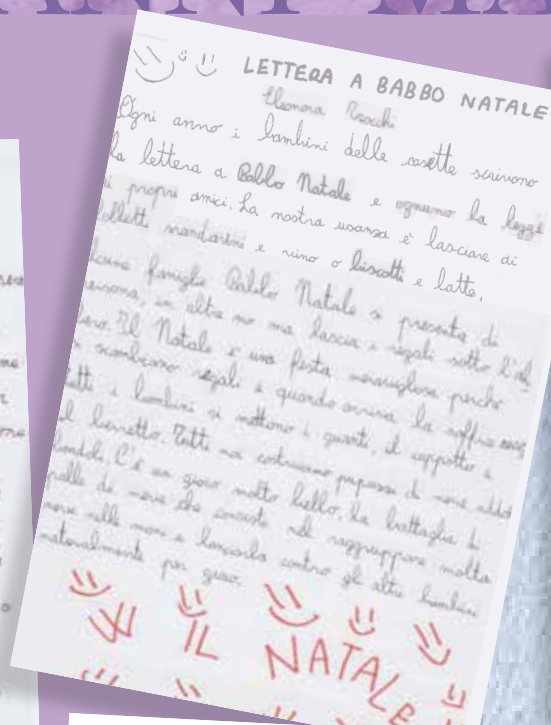 LETTERA A BABBO NATALE
Eleonora
Ogni anno i bambini delle casette scrivono
la lettera a Babbo Natale e ognuno la legge
i propri amici. La nostra usanza è lasciare di
mandarini e vino o biscotti e latte.
famiglie Babbo Natale si presenta di
in altre no ma lascia i regali sotto l'al
Il Natale è una festa meravigliosa perchè
si scambiano regali e quando arriva la soffice neve
tutti i bambini si mettono i guanti, il cappotto e
il berretto. Tutti noi costruiamo pupazzi di neve
C'è un gioco molto bello, la battaglia di
palle di neve che consiste nel raggruppare molta
neve nelle mani e lanciarla contro gli altri bambini
naturalmente per gioco.
W IL NATALE